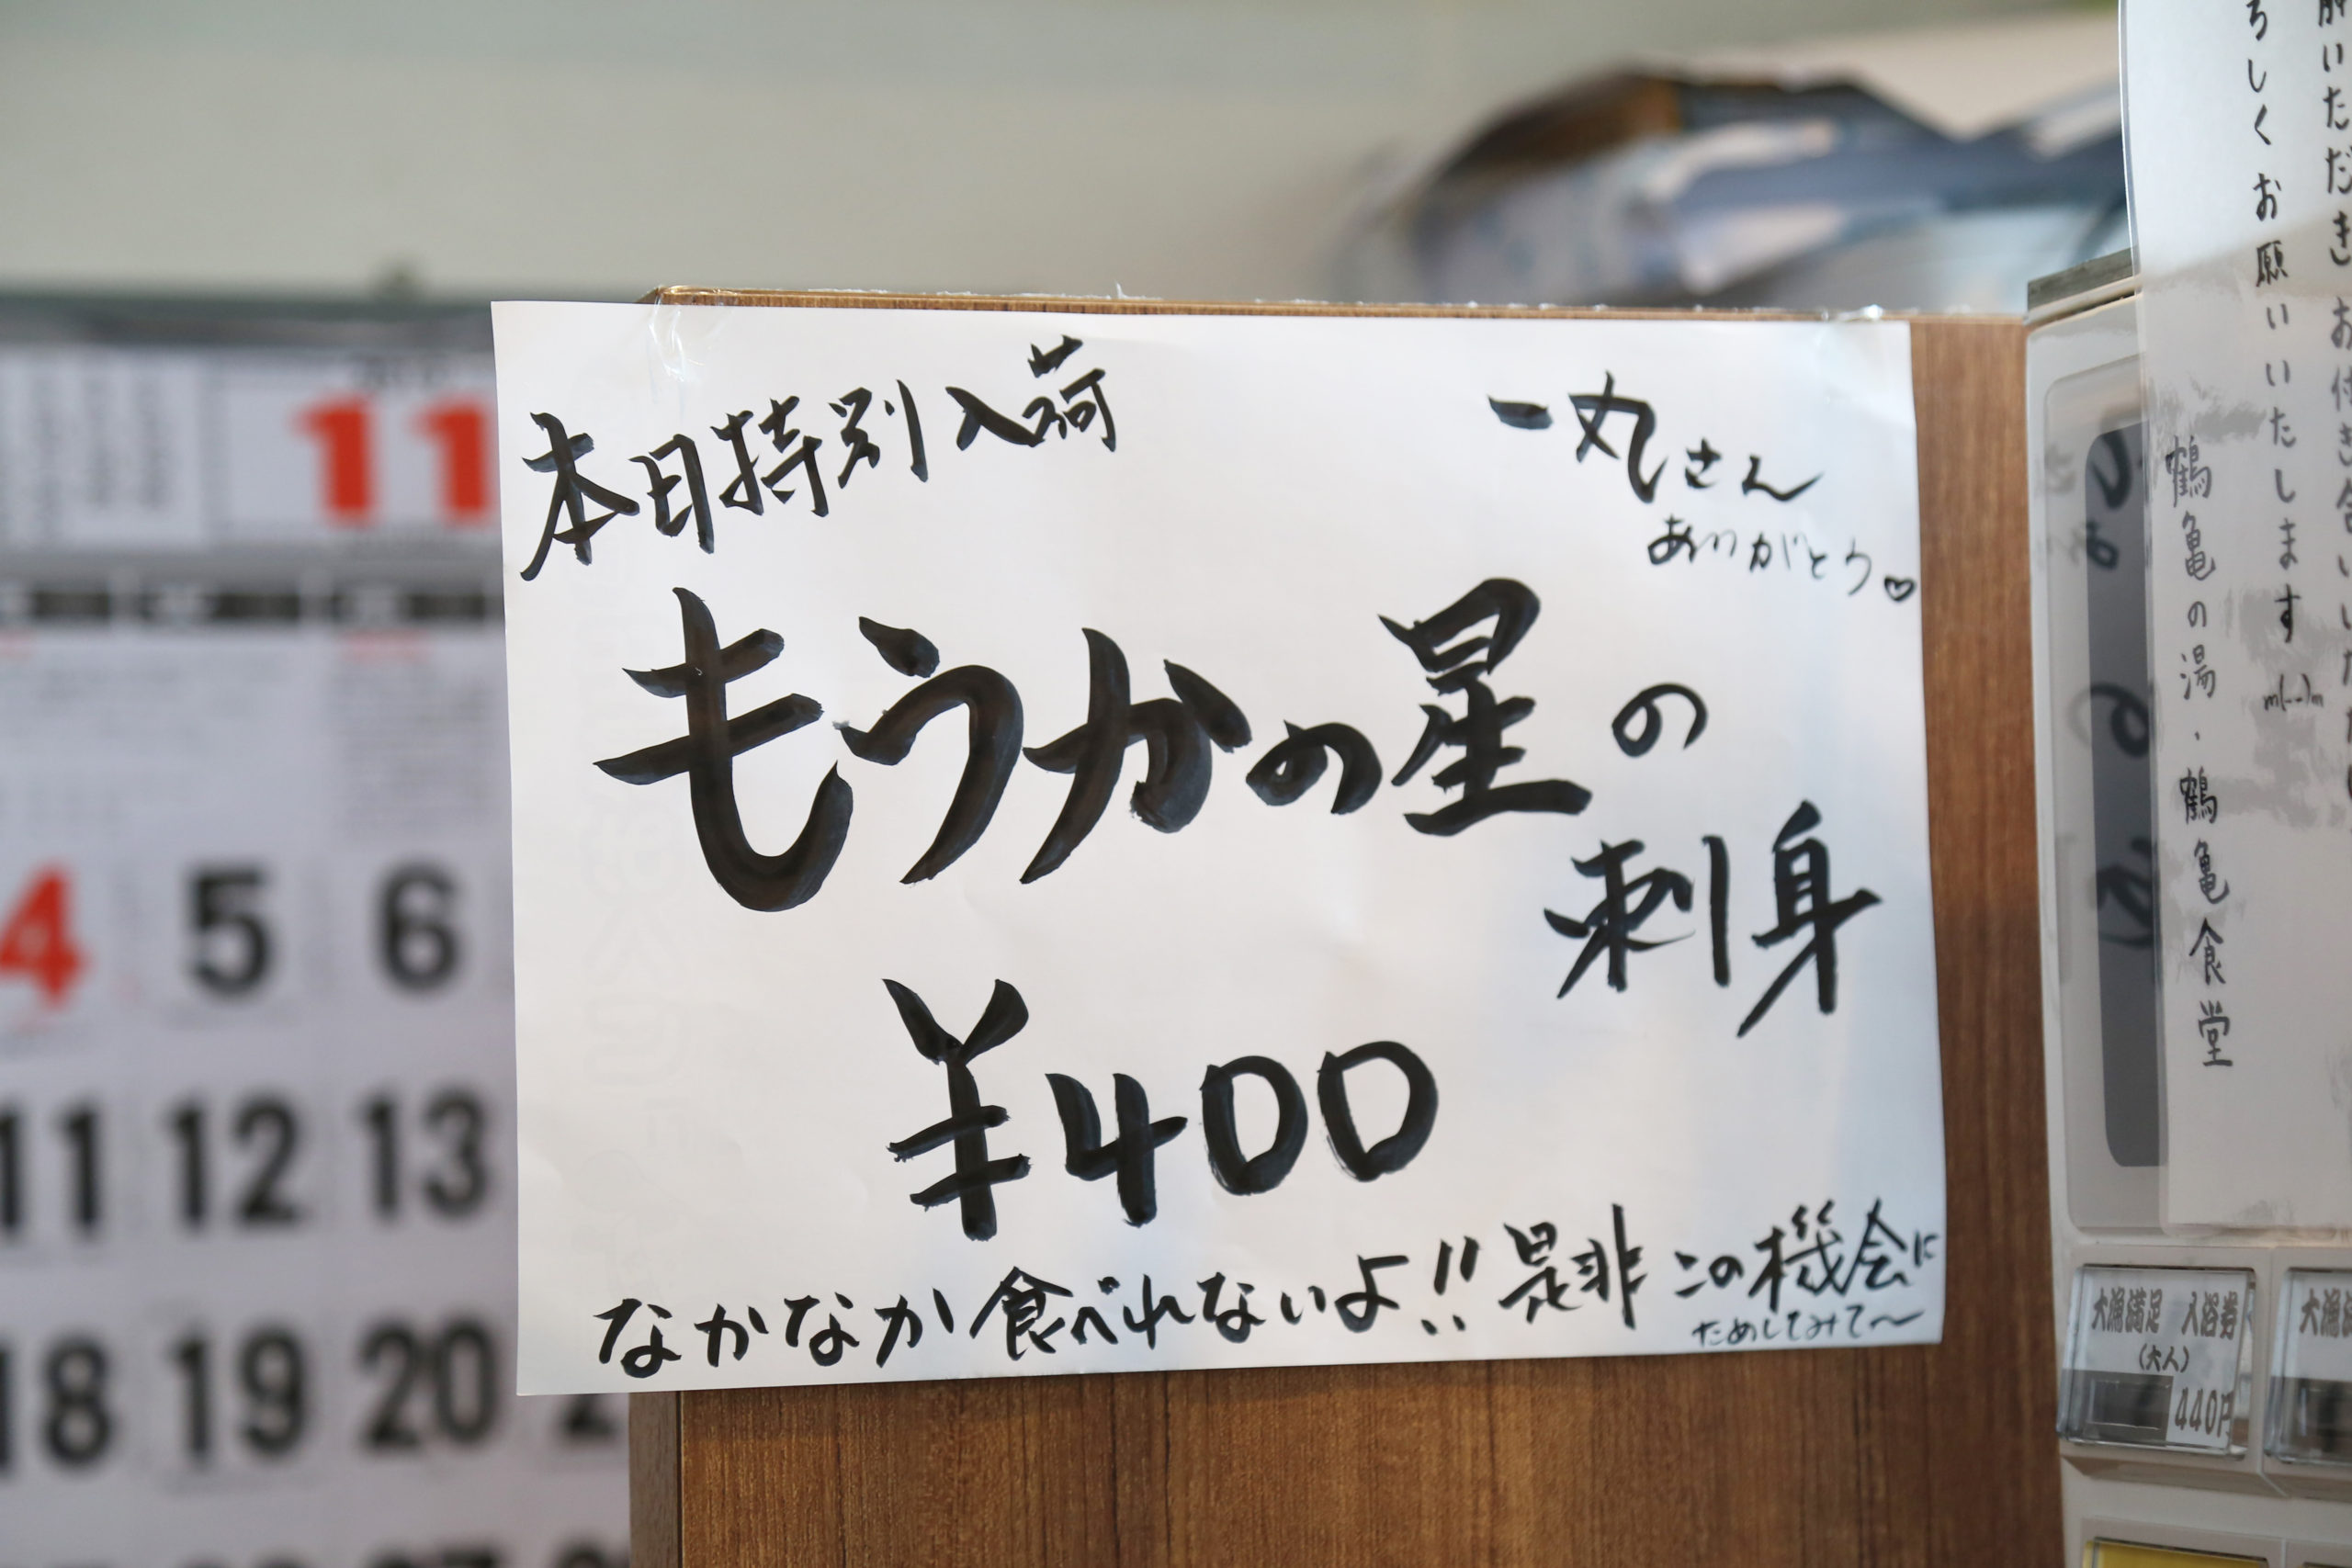 本日特別入荷
一丸さん
ありがとう♡
もうかの星の
刺身
¥400
なかなか食べれないよ!!是非この機会に
ためしてみて〜
11
4 5 6
11 12 13
18 19 20
ろしくお願いいたします m(--)m
鶴亀の湯・鶴亀食堂
大漁満足 入浴券
(大人)
440円